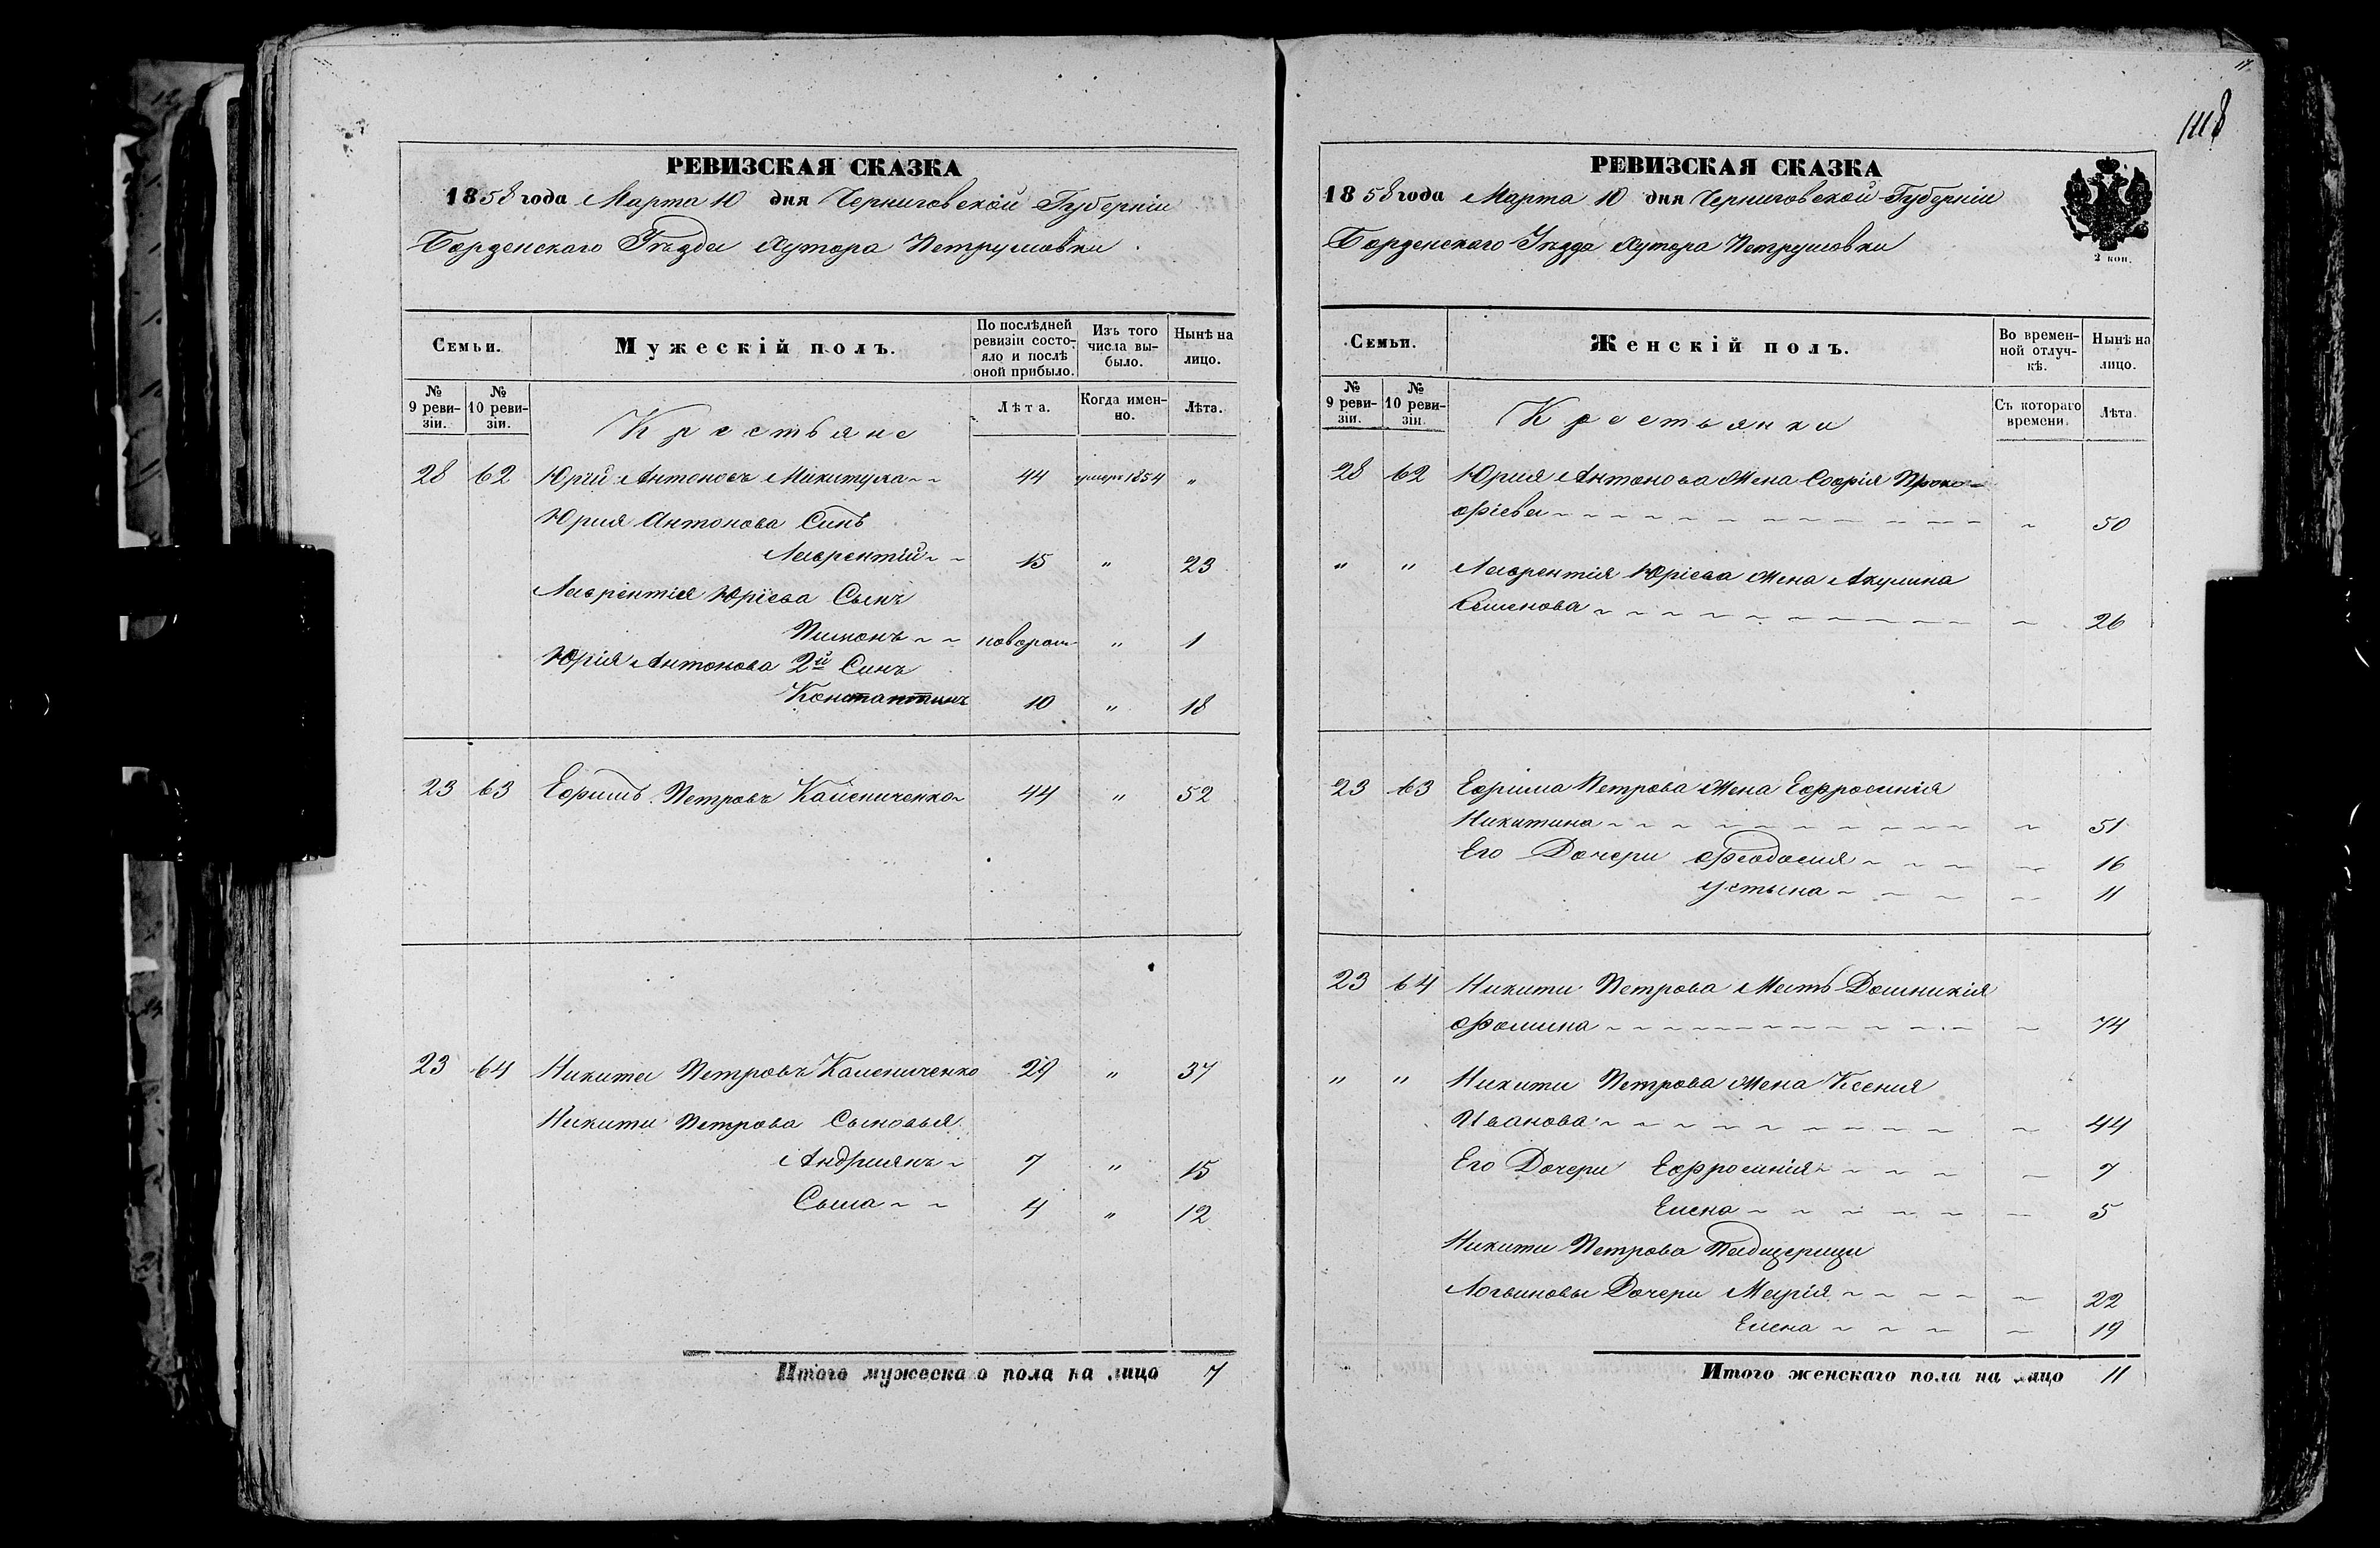 РЕВИЗСКАЯ СКАЗКА
1858 года Марта 10 дня Черниговской Губерніи
Борзенскаго Уѣзда Хутора Петрушовки
Семьи. Мужескій полъ. По послѣдней ревизіи состояло и послѣ оной прибыло. Изъ того числа выбыло. Нынѣ на лицо.
№ 9 ревизіи. № 10 ревизіи. Крестьяне Лѣта. Когда именно. Лѣта.
28 62 Юрій Антоновъ Микитуха 44 умеръ 1854 "
Юрия Антонова Синъ
Лаврентій 15 " 23
Лаврентія Юріева Сынъ
Пимонъ новорож " 1
Юрія Антонова 2й Синъ
Константинъ 10 " 18
23 63 Ефимъ Петровъ Каменченко 44 " 52
23 64 Никита Петровъ Каменченко 29 " 37
Никити Петрова Сыновья
Андриянъ 7 " 15
Сыма 4 " 12
Итого мужескаго пола на лицо 7
17
118
РЕВИЗСКАЯ СКАЗКА
1858 года Марта 10 дня Черниговской Губерніи
Борзенскаго Уѣзда Хутора Петрушовки
2 коп.
Семьи. Женскій полъ. Во временной отлучкѣ. Нынѣ на лицо.
№ 9 ревизіи. № 10 ревизіи. Крестьянки Съ котораго времени. Лѣта.
28 62 Юрия Антонова Жена Софія Проко-
фіева 50
" " Лаврентія Юріева Жена Акулина
Семенова 26
23 63 Ефима Петрова Жена Ефросинія
Никитина 51
Его Дочери Феодосия 16
Устына 11
23 64 Никити Петрова Мать Домникія
Фомина 74
" " Никити Петрова Жена Ксения
Иванова 44
Его Дочери Ефросинія 7
Елена 5
Никити Петрова Падщерици
Логвиновы Дочери Марія 22
Елена 19
Итого женскаго пола на лицо 11